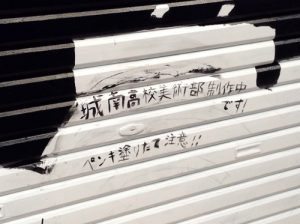 城南高校美術部制作中
です!
ペンキ塗りたて注意!!